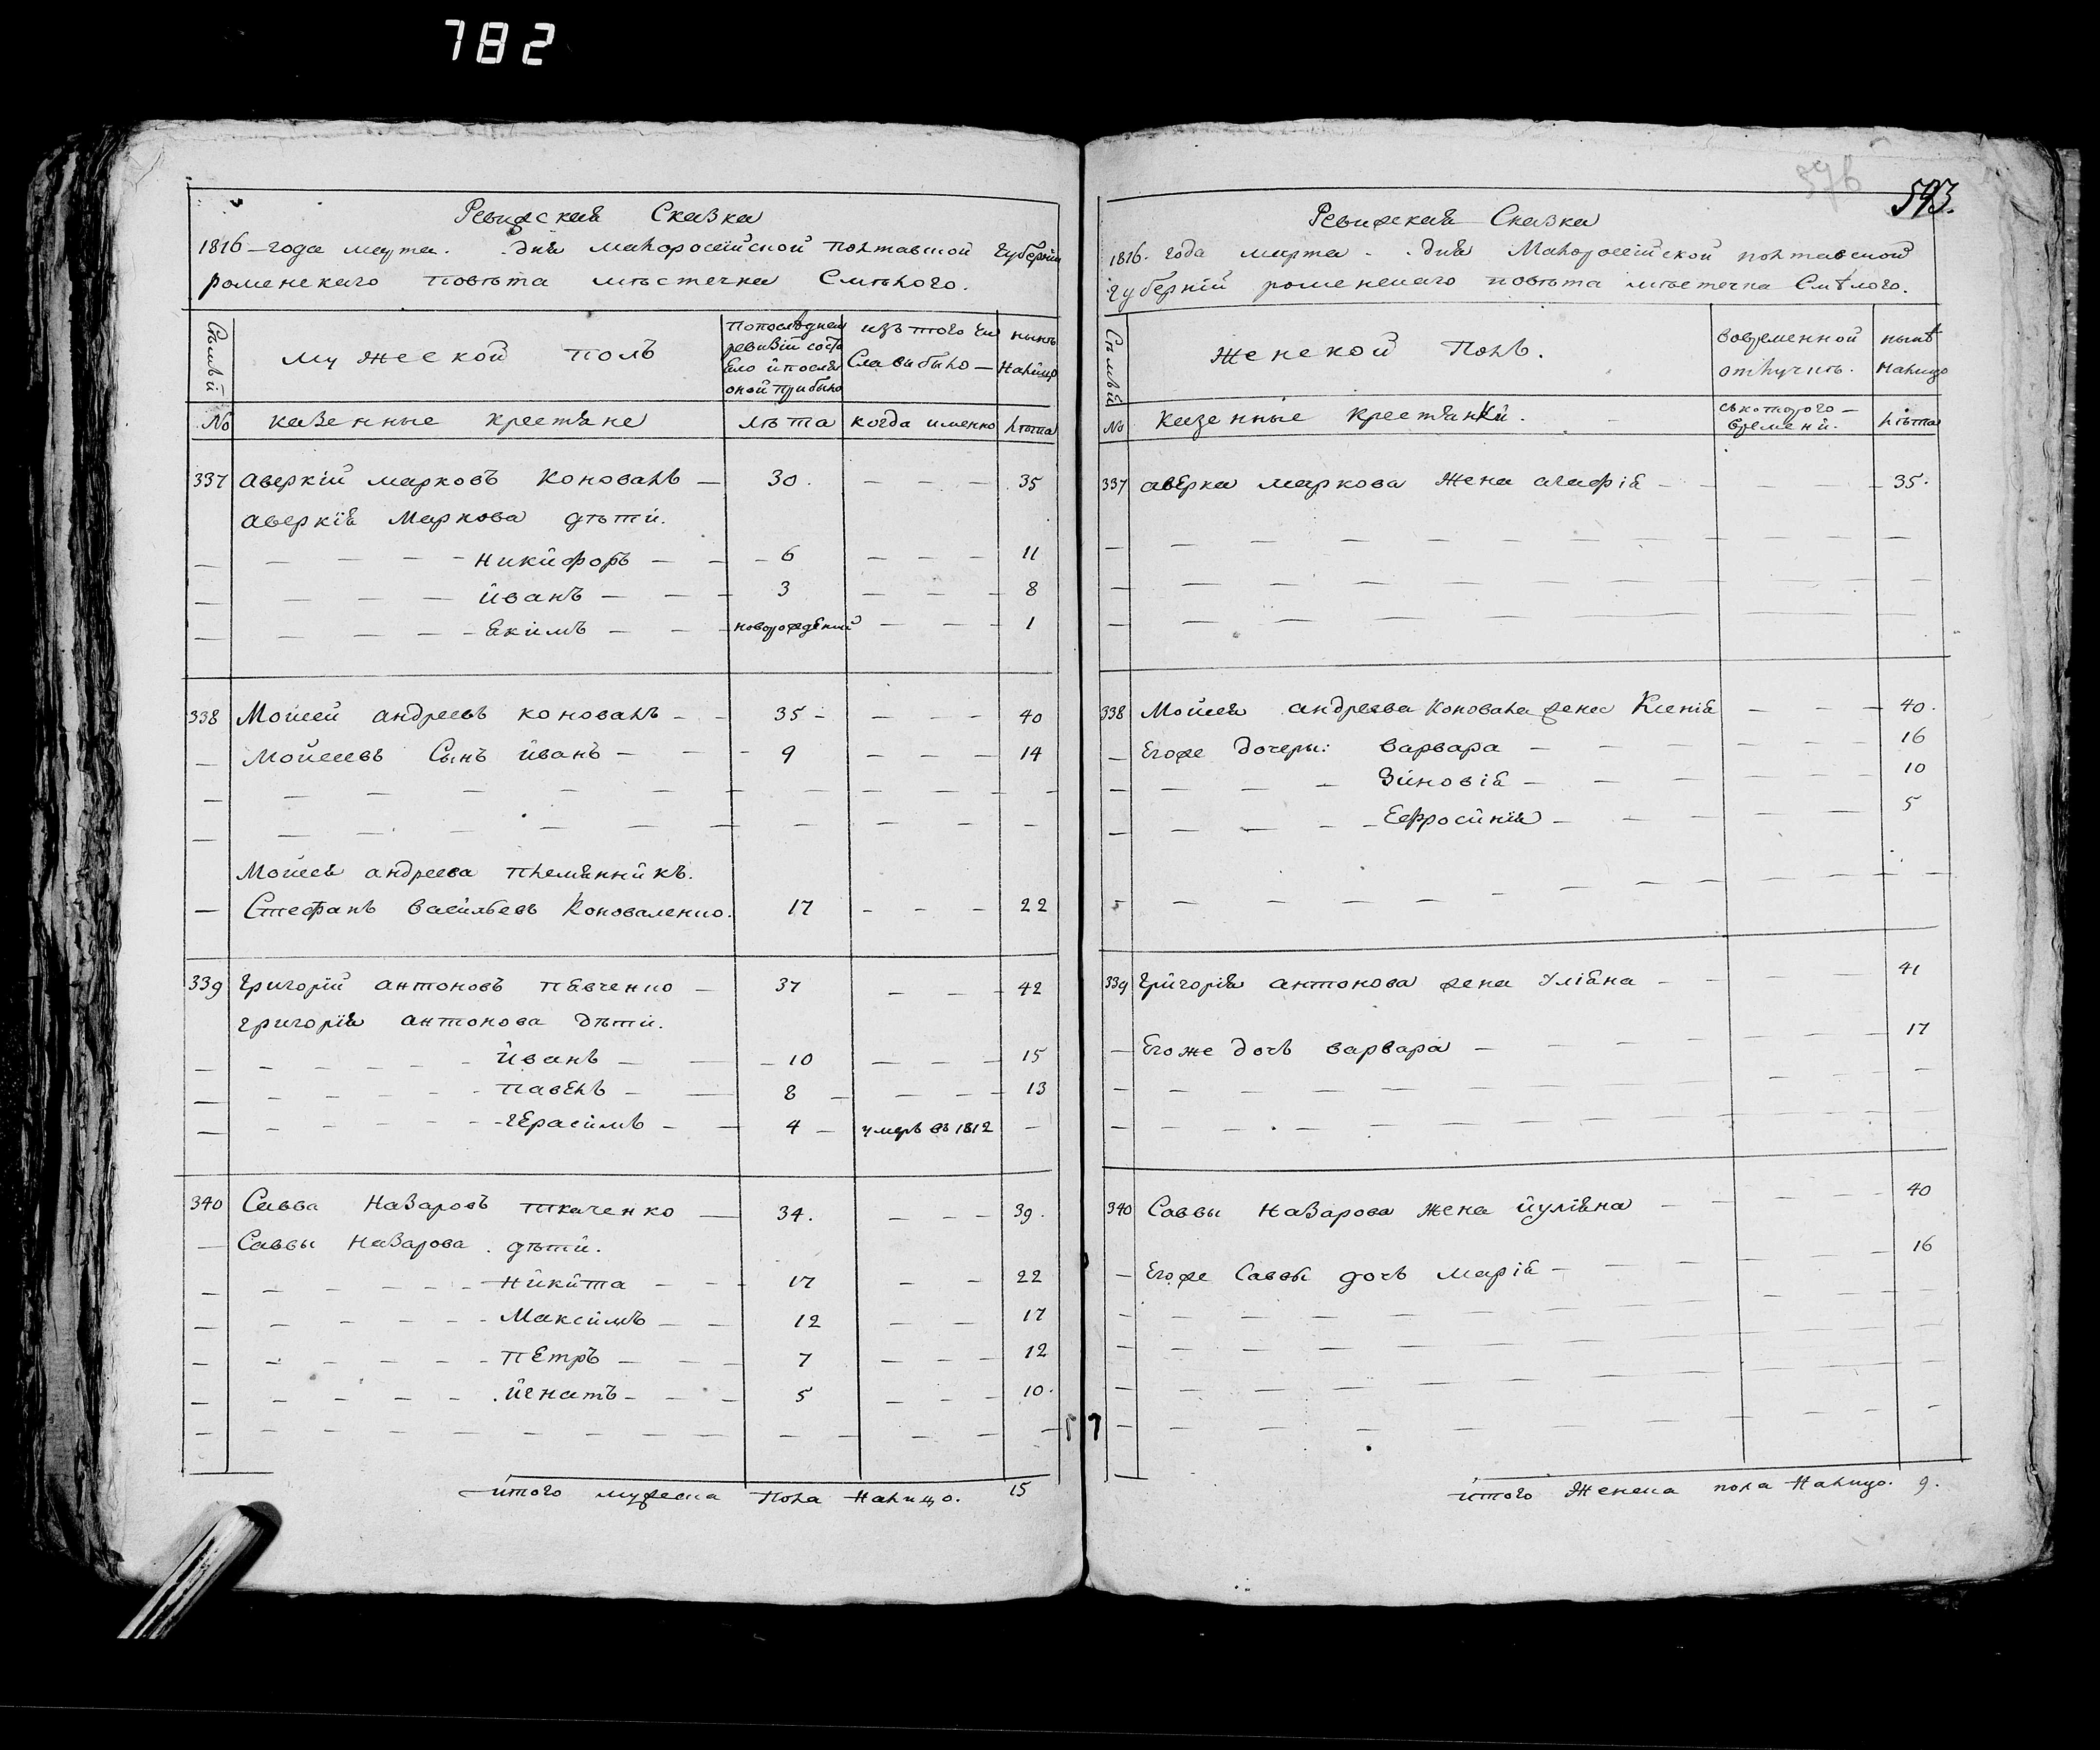 782
Ревизская Сказка
1816-года марта. . дня малоросийской полтавской губернїи
роменскаго повѣта мѣстечка Смѣлого.
Семьи
мужеской полъ
попоследней ревизїи состояло и после оной прибыло
изъ того числа выбыло —
нынѣ налицо
№ казенные крестяне лѣта когда именно лѣта
337 аверкїй марковъ коновалъ — 30. — — — 35
аверкїя маркова дѣти.
— — — — никифоръ — — 6 — — — 11
— — — — иванъ — — 3 — — — 8
— — — — екимъ — — новорожденый — — 1
338 Мойсей андреевъ коновалъ - - 35 - — — — 40
— Мойсеевъ Сынъ иванъ — — - 9 — — — 14
Мойсея андреева племянникъ.
— Стефанъ васильевъ коноваленко. 17 - - — 22
339 григорїй антоновъ пѣвченко — 37 — — — 42
григорїя антонова дѣти.
— — — — иванъ — — 10 — — — 15
— — — — павелъ — — 8 — — — 13
— — — — герасимъ — — 4 — умеръ въ 1812 —
340 Савва назаровъ ткаченко — 34. — — — 39.
— Саввы назарова. дѣти.
— — — — никита — — 17 — — 22
— — — — Максимъ — — 12 — — 17
— — — — петръ — — 7 — — — 12
— — — — игнатъ — — 5 — — — 10.
итого мужеска пола налицо. 15
593.
596
Ревизская Сказка
1816. года марта. . дня Малоросїйской полтавской
губернїи роменскаго повѣта мѣстечка Смѣлого.
Семьи
женской полъ.
вовременной отлучкѣ.
нынѣ налицо
№ казенные крестянки. съ которого — времени. лѣта
337 аверкия маркова жена агафїя — — — — 35.
338 Мойсея андреева коновала жена Ксенїя — — — 40.
— Егоже дочеры: варвара — — — 16
— — — зиновїя — — — 10
— — — Ефросинїя — — — 5
339 григорїя антонова жена улїяна — — — 41
— Егоже дочь варвара — — — 17
340 Саввы назарова жена иулїяна — — — 40
— Егоже Саввы дочь марїя — — — 16
итого женска пола налицо. 9.